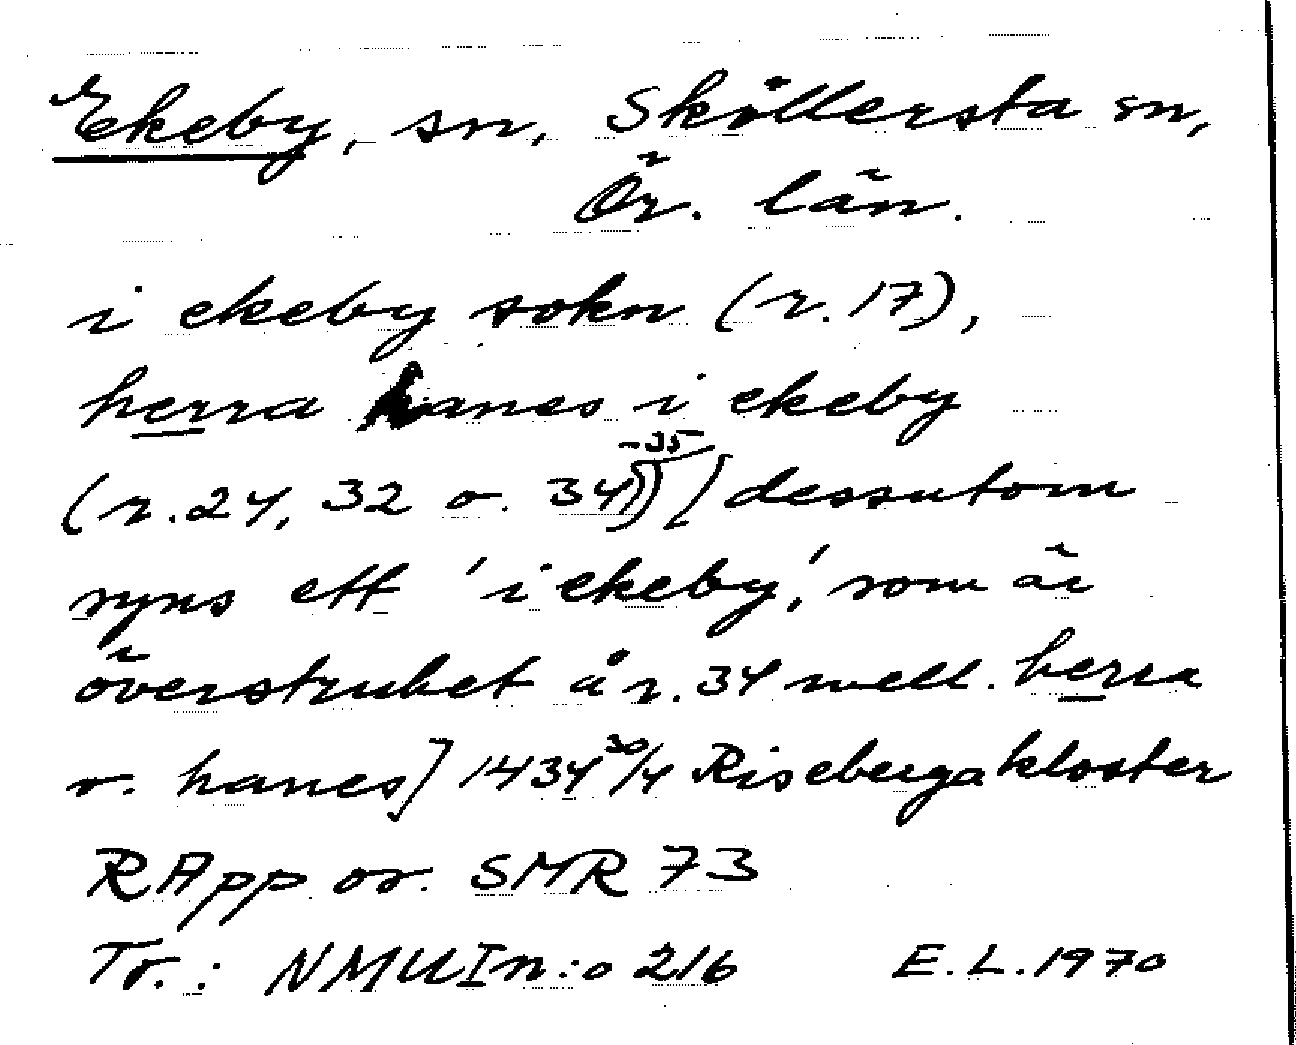 Ekeby, sn, Sköllersta sn,
Ör. län.
i ekeby sokn (r. 17),
herra hanes i ekeby
(r. 24, 32 o. 34-35) [dessutom
syns ett 'i ekeby', som är
överstruket å r. 34 mell. herra
o. hanes] 1434 30/4 Riseberga kloster
RApp or. SMR 73
Tr.: NMU I n:o 216 E.L. 1970